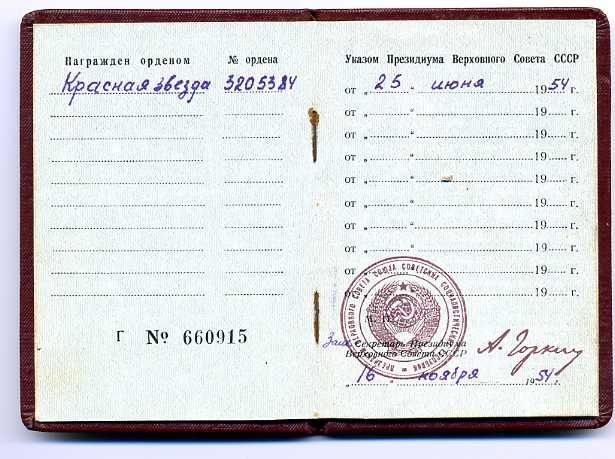 Награжден орденом № ордена
Красная звезда 3205384
Г № 660915
Указом Президиума Верховного Совета СССР
от „ 25 “ июня 1954 г.
от „ “ 19 г.
от „ “ 19 г.
от „ “ 19 г.
от „ “ 19 г.
от „ “ 19 г.
от „ “ 19 г.
от „ “ 19 г.
от „ “ 19 г.
„ “ 19 г.
Секретарь Президиума
Верховного Совета СССР
А. Горкин
„ 16 “ ноября 1954 г.